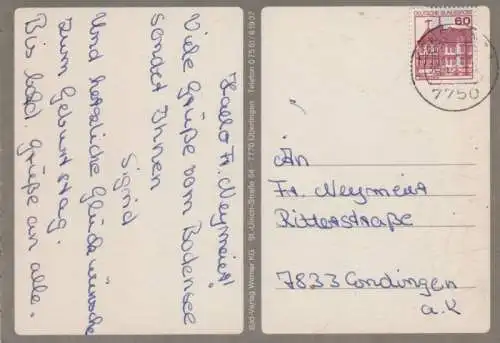 Hallo Fr. Neymeier!
Viele Grüße vom Bodensee
sendet Ihnen
Sigrid
Und herzliche Glückwünsche
zum Geburtstag.
Bis bald. Grüße an alle.
Bild-Verlag Werner KG St.-Ulrich-Straße 64 7770 Überlingen Telefon
DEUTSCHE BUNDESPOST
60
7750
An
Fr. Neymeier
Ritterstraße
7833 Endingen
a. K